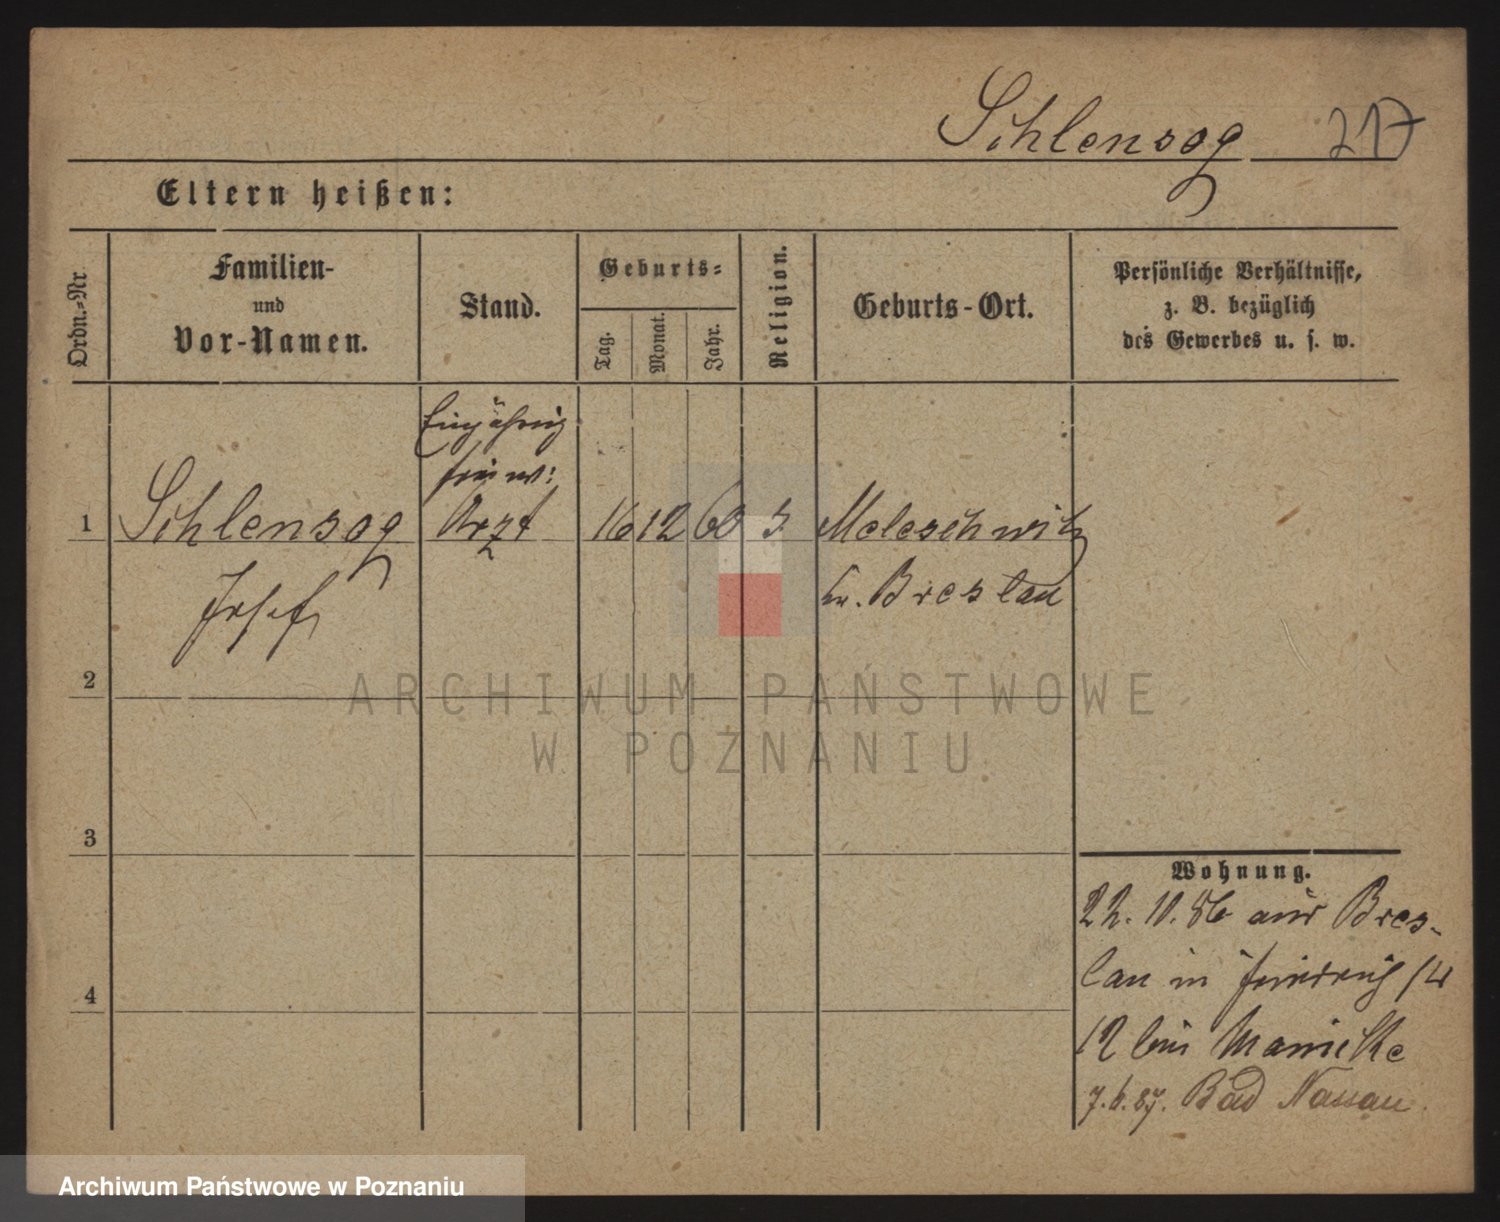 Schlensog 217
Eltern heißen:
Ordn.-Nr.
Familien-
und
Vor-Namen.
Stand.
Geburts-
Tag.
Monat.
Jahr.
Religion.
Geburts-Ort.
Persönliche Verhältnisse,
z. B. bezüglich
des Gewerbes u. s. w.
Einjährig
freiw:
1 Schlensog Arzt 16 12 60 Meleschwitz
Josef Kr. Breslau
2
3
4
Wohnung.
22. 10. 86 aus Bres-
lau in
12 bei
7. 6. 87. Bad Nassau.
ARCHIWUM PAŃSTWOWE
W POZNANIU
Archiwum Państwowe w Poznaniu